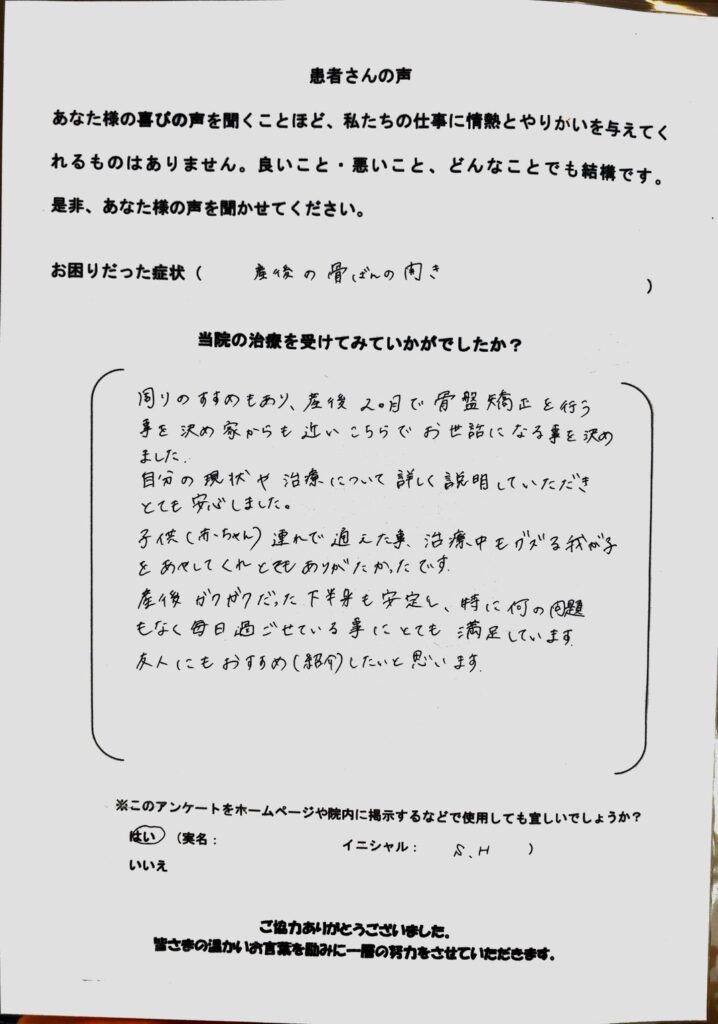 患者さんの声
あなた様の喜びの声を聞くことほど、私たちの仕事に情熱とやりがいを与えてく
れるものはありません。良いこと・悪いこと、どんなことでも結構です。
是非、あなた様の声を聞かせてください。
お困りだった症状（ 産後の骨ばんの開き ）
当院の治療を受けてみていかがでしたか？
周りのすすめもあり、産後2ヶ月で骨盤矯正を行う
事を決め家からも近いこちらでお世話になる事を決め
ました.
自分の現状や治療について詳しく説明していただき
とても安心しました。
子供(赤ちゃん)連れで通えた事、治療中もグズる我が子
をあやしてくれとてもありがたかったです.
産後ガクガクだった下半身も安定し、特に何の問題
もなく毎日過ごせている事にとても満足しています.
友人にもおすすめ(紹介)したいと思います.
※このアンケートをホームページや院内に掲示するなどで使用しても宜しいでしょうか？
はい （実名： イニシャル： S.H ）
いいえ
ご協力ありがとうございました。
皆さまの温かいお言葉を励みに一層の努力をさせていただきます。